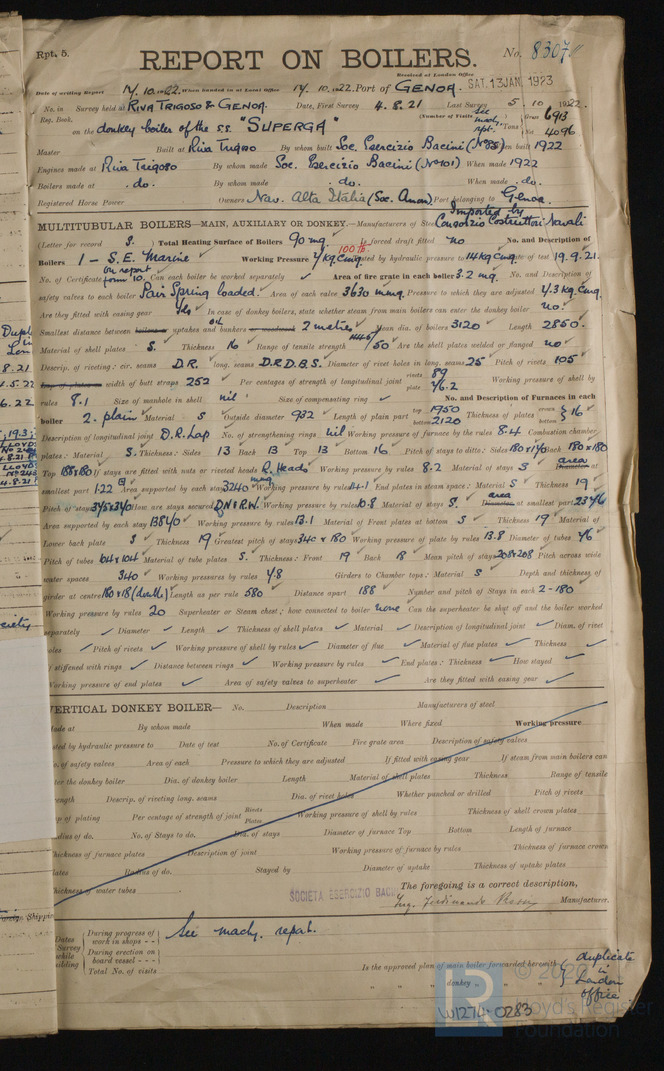 Rpt. 5.
REPORT ON BOILERS.
No. 8307
Received at London Office
Date of writing Report 17. 10. 1922. When handed in at Local Office 17. 10. 1922. Port of GENOA. SAT. 13 JAN. 1923
No. in Survey held at RIVA TRIGOSO & GENOA. Date, First Survey 4. 8. 21 Last Survey 5 - 10 1922.
Reg. Book. (Number of Visits See mach. rpt.) Gross 6913
on the donkey boiler of the s.s. "SUPERGA" Tons Net 4096
Master Built at Riva Trigoso By whom built Soc. Esercizio Bacini When built 1922
Engines made at Riva Trigoso By whom made Soc. Esercizio Bacini (No 101) When made 1922
Boilers made at do. By whom made do. When made do.
Registered Horse Power Owners Nav. Alta Italia (Soc. Anon). Port belonging to Genoa.
MULTITUBULAR BOILERS—MAIN, AUXILIARY OR DONKEY.—Manufacturers of Steel Imported by Consorzio Costruttori Navali
(Letter for record S. ) Total Heating Surface of Boilers 90 mq. Is forced draft fitted no No. and Description of
Boilers 1 - S.E. Marine Working Pressure 7 Kg.Cmq. 100 lb. Tested by hydraulic pressure to 14 Kg.Cmq. Date of test 19.9.21.
No. of Certificate on report form 10. Can each boiler be worked separately Area of fire grate in each boiler 3.2 mq. No. and Description of
safety valves to each boiler Pair Spring loaded. Area of each valve 3630 mmq. Pressure to which they are adjusted 7.3 Kg.Cmq.
Are they fitted with easing gear Yes In case of donkey boilers, state whether steam from main boilers can enter the donkey boiler no.
Smallest distance between boilers or uptakes and bunkers or woodwork oil 2 metres Mean dia. of boilers 3120 Length 2850.
Material of shell plates S. Thickness 16 Range of tensile strength 44.5/50 Are the shell plates welded or flanged no
Descrip. of riveting: cir. seams D.R. long. seams D.R.D.B.S. Diameter of rivet holes in long. seams 25 Pitch of rivets 105
Lap of plates or width of butt straps 252 Per centages of strength of longitudinal joint rivets 89 plate 76.2 Working pressure of shell by
rules 8.1 Size of manhole in shell nil Size of compensating ring No. and Description of Furnaces in each
boiler 2. plain Material S Outside diameter 932 Length of plain part top 1950 bottom 2120 Thickness of plates crown bottom } 16
Description of longitudinal joint D.R. Lap No. of strengthening rings nil Working pressure of furnace by the rules 8.4 Combustion chamber
plates: Material S. Thickness: Sides 13 Back 13 Top 13 Bottom 16 Pitch of stays to ditto: Sides 180x170 Back 180x180
Top 188x180 If stays are fitted with nuts or riveted heads R. Heads Working pressure by rules 8.2 Material of stays S area Diameter at
smallest part Area supported by each stay 3240 mmq. Working pressure by rules End plates in steam space: Material S Thickness 19
Pitch of stays 345x340 How are stays secured D.N&R.W. Working pressure by rules 10.8 Material of stays S. area Diameter at smallest part 2376
Area supported by each stay Working pressure by rules 13.1 Material of Front plates at bottom S Thickness 19 Material of
Lower back plate S Thickness 19 Greatest pitch of stays 340 x 180 Working pressure of plate by rules 13.8 Diameter of tubes 76
Pitch of tubes 104x104 Material of tube plates S. Thickness: Front 19 Back 18 Mean pitch of stays 208x208 Pitch across wide
water spaces 340 Working pressures by rules 7.8 Girders to Chamber tops: Material S Depth and thickness of
girder at centre 180x18 (double) Length as per rule 580 Distance apart 188 Number and pitch of Stays in each 2-180
Working pressure by rules 20 Superheater or Steam chest; how connected to boiler none Can the superheater be shut off and the boiler worked
separately Diameter Length Thickness of shell plates Material Description of longitudinal joint Diam. of rivet
holes Pitch of rivets Working pressure of shell by rules Diameter of flue Material of flue plates Thickness
If stiffened with rings Distance between rings Working pressure by rules End plates: Thickness How stayed
Working pressure of end plates Area of safety valves to superheater Are they fitted with easing gear
VERTICAL DONKEY BOILER— No. Description Manufacturers of steel
Made at By whom made When made Where fixed Working pressure
tested by hydraulic pressure to Date of test No. of Certificate Fire grate area Description of safety valves
No. of safety valves Area of each Pressure to which they are adjusted If fitted with easing gear If steam from main boilers can
enter the donkey boiler Dia. of donkey boiler Length Material of shell plates Thickness Range of tensile
strength Descrip. of riveting long. seams Dia. of rivet holes Whether punched or drilled Pitch of rivets
Lap of plating Per centage of strength of joint Rivets Plates Working pressure of shell by rules Thickness of shell crown plates
Radius of do. No. of Stays to do. Dia. of stays Diameter of furnace Top Bottom Length of furnace
Thickness of furnace plates Description of joint Working pressure of furnace by rules Thickness of furnace crown
plates Radius of do. Stayed by Diameter of uptake Thickness of uptake plates
Thickness of water tubes
The foregoing is a correct description,
SOCIETÀ ESERCIZIO BACINI Ing. Ferdinando Manufacturer.
Dates of Survey while building
During progress of work in shops - -
During erection on board vessel - - -
Total No. of visits
See mach. repat.
Is the approved plan of main boiler forwarded herewith
" " " donkey " " "
duplicate in London office
W1274-0283
© 2020
LR
Lloyd's Register
Foundation